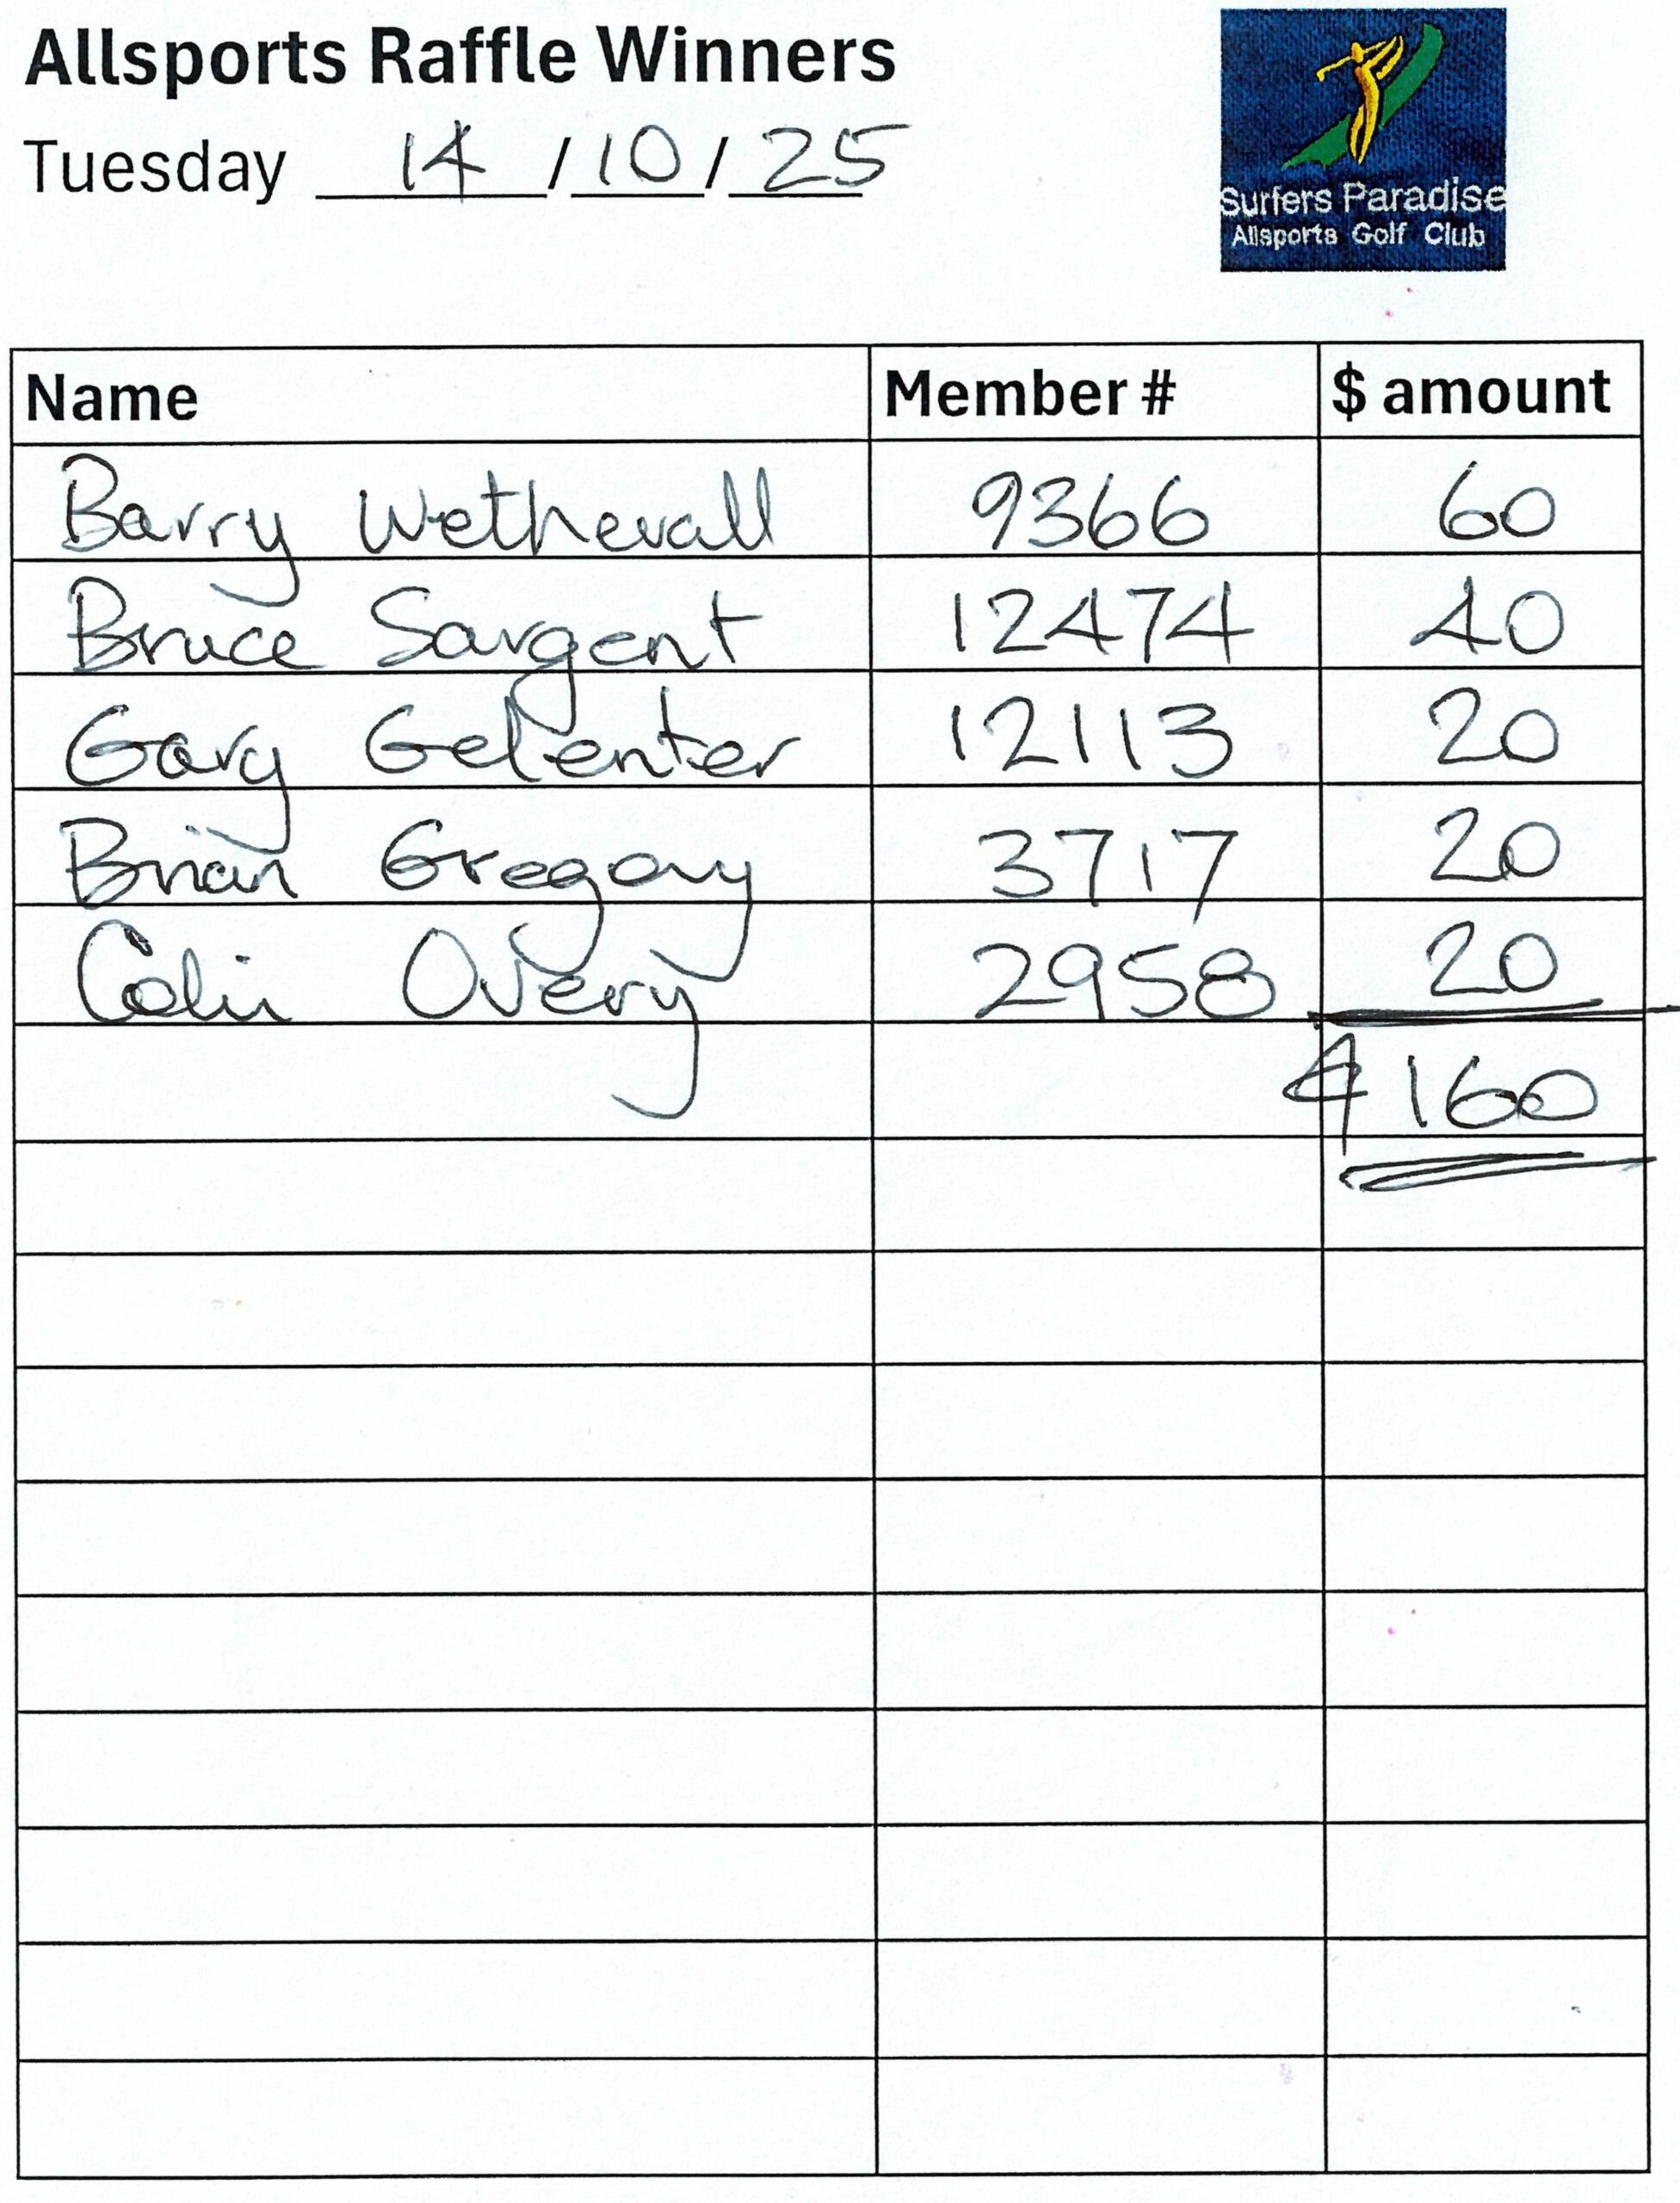 Allsports Raffle Winners
Tuesday 14/10/25
Surfers Paradise
Allsports Golf Club
Name Member # $ amount
Barry Wetherall 9366 60
Bruce Sargent 12474 40
Gary Gelenter 12113 20
Brian Gregory 3717 20
Colin Overy 2958 20
$160